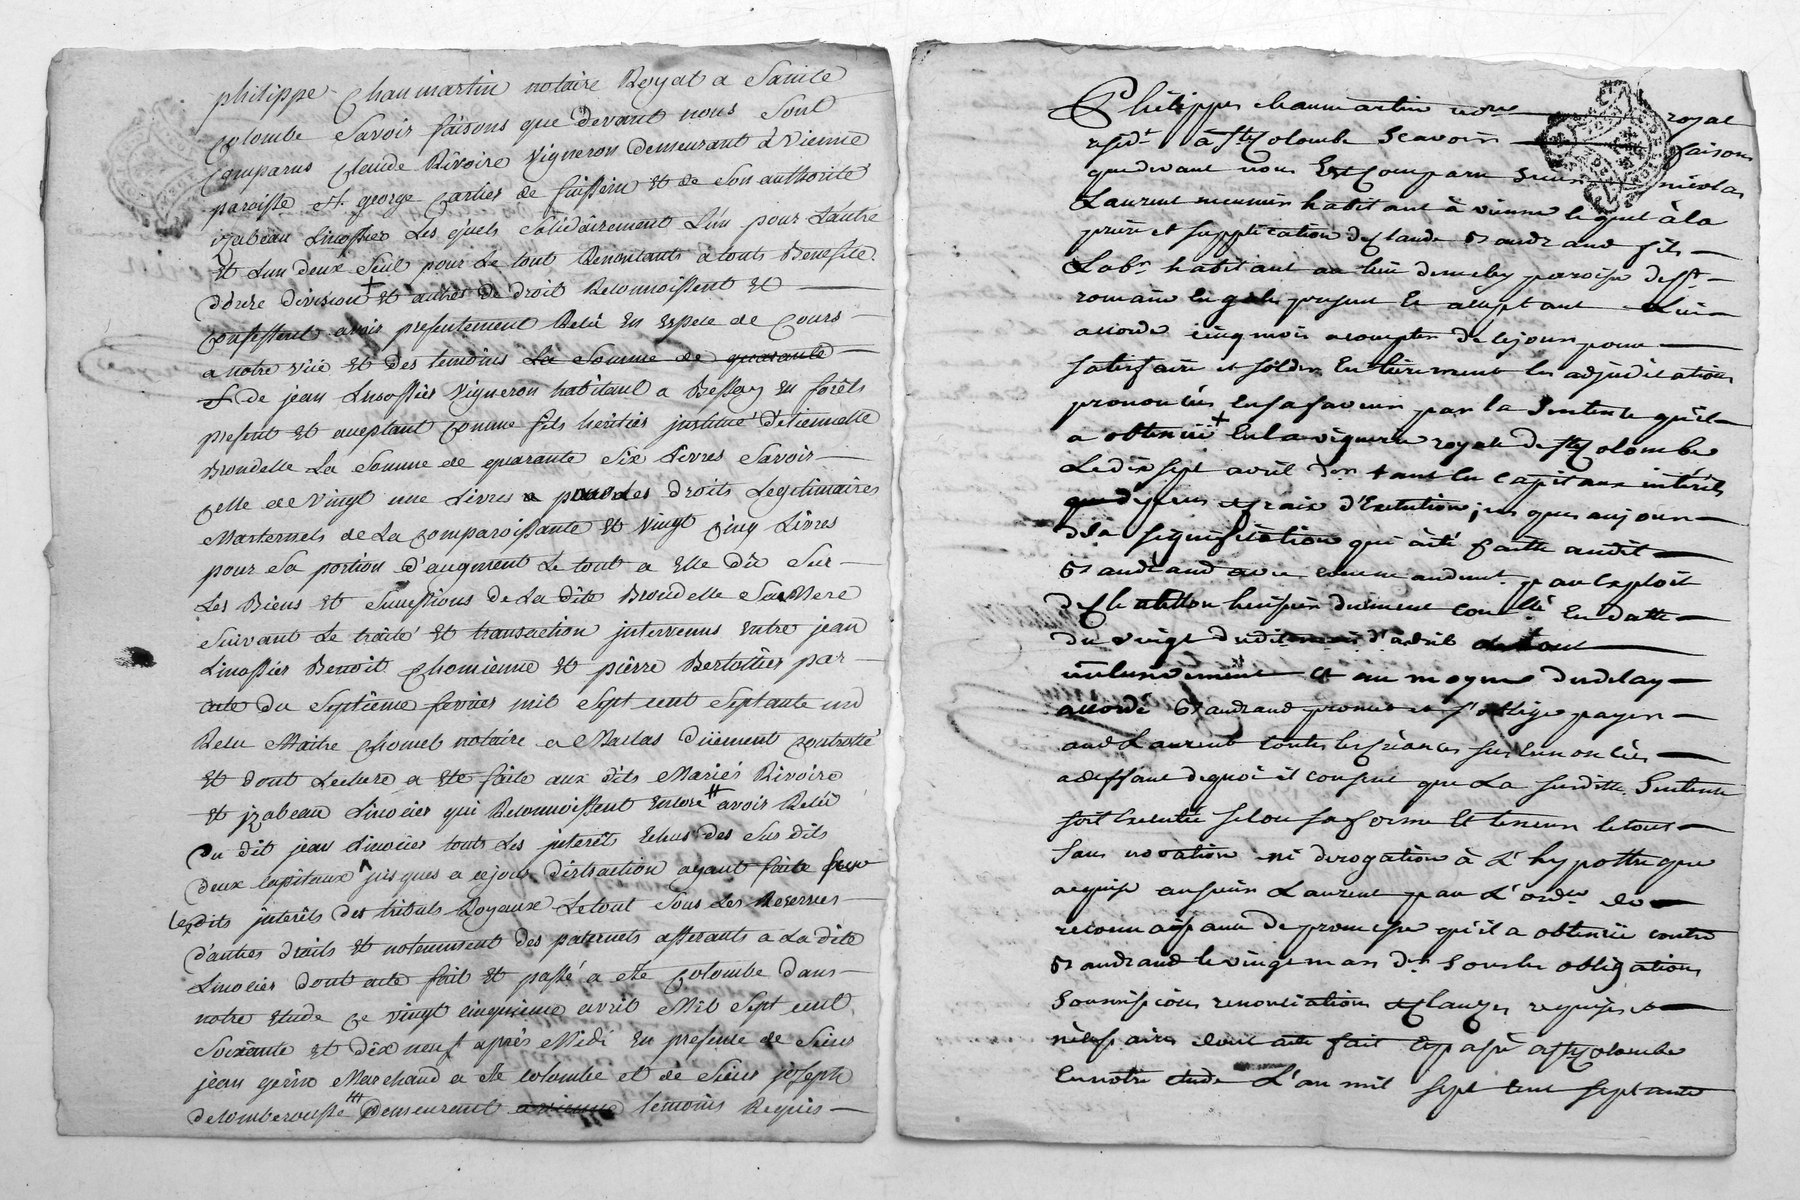 philippe Chaumartin notaire Royal a Sainte
Colombe Savoir faisons que devant nous Sont
Comparus Claude Rivoire vigneron demeurant à Vienne
paroisse St george parties de fuissein et de Son authorité
izabeau Linossier Les quels Solidairement L'un pour L'autre
et L'un deux Seul pour Le tout Renonitants a touts Benefite
d'ordre division et autres de droit Reconnoissent et
Confessent avoir presentement Reçu en Espece de Cours
a notre vüe et des temoins La Somme de quarante
de jean Linossier Vigneron habitant a Bessay en forêts
present et aceptant Comme fils heritier justitué d'étiennette
Brondelle La Somme de quarante Six Livres Savoir
Celle de Vingt une Livres pour Les droits Legitimaires
Marternels de La Comparoissante et vingt Cinq Livres
pour Sa portion d'augment Le tout a Elle dû Sur
Les Biens et Successions de La dite Brondelle Sa Mere
Suivant Le traité et transaction intervenus entre jean
Linossier Benoit Chomienne et pièrre Bertottier par
acte du Septième fevrier mil Sept cent Septante un
Reçu Maitre Chomel notaire a Maclas düement Controllé
et dont Lecture a ete faite aux dits Mariés Rivoire
et jzabeau Linocier qui Reconnoissent encore avoir Reçu
Du dit jean Linocier touts Les interêt Echus des Sus dits
deux Capitaux jusques a cejour distraction ayant faite sur
lesdits jnterêts des tributs Royaux Le tout Sous Les Reserves
d'autres droits et notenment des paternels afferants a La dite
Linocier dont acte fait et passé a Ste Colombe dans
notre etude Ce vingt cinquieme avril Mil Sept cent
Soixante et dix neuf après Midi en presence de Sieur
jean gerin Marchand a Ste Colombe et de Sieur joseph
delomberousse demeurent a vienne temoins Requis
Philippes chaumartin nore royal
resdt à Ste Colombe Scavoir faisons
que devant nous Est Comparu Sieur nicolas
Laurent meunier habitant à vienne lequel à la
prière et supplication de Claude Standrand fils
Labr habitant au lieu de paroisse de St
romain En gal present Et aceptant Lui
accorde cinq mois a compter de ce jour pour
satisfaire et solder Entièrement les adjudications
prononcées En sa faveur par la Sentence qu'il
a obtenüe En la viguerie royale de Ste Colombe
Le dix sept avril dr tant En Capitaux intérêts
que depens et fraix d'Exécution, jusques aujour
d'la signification qui à été faitte audit
Standrand avec commandemt par Exploit
de huissier duement Conllé En datte
du vingt dudit mois d'avril
inclusivement Et au moyen dudelay
accordé Standrand promet et s'oblige payer
aud Laurent toutes les créances sus Enoncées
a deffaut de quoi il consent que La susditte Sentence
soit Executée selon sa forme Et teneur letout
Sans novation ni derogation à L'hypotheque
acquise au sieur Laurent par L'ordre de
reconnaissance de promesse qu'il a obtenüe contre
Standrand le vingt mars dr Sous les obligations
Soumissions renonciations et Clauzes requises et
nécessaires dont acte fait Et passé a Ste Colombe
En notre etude L'an mil sept cent septante